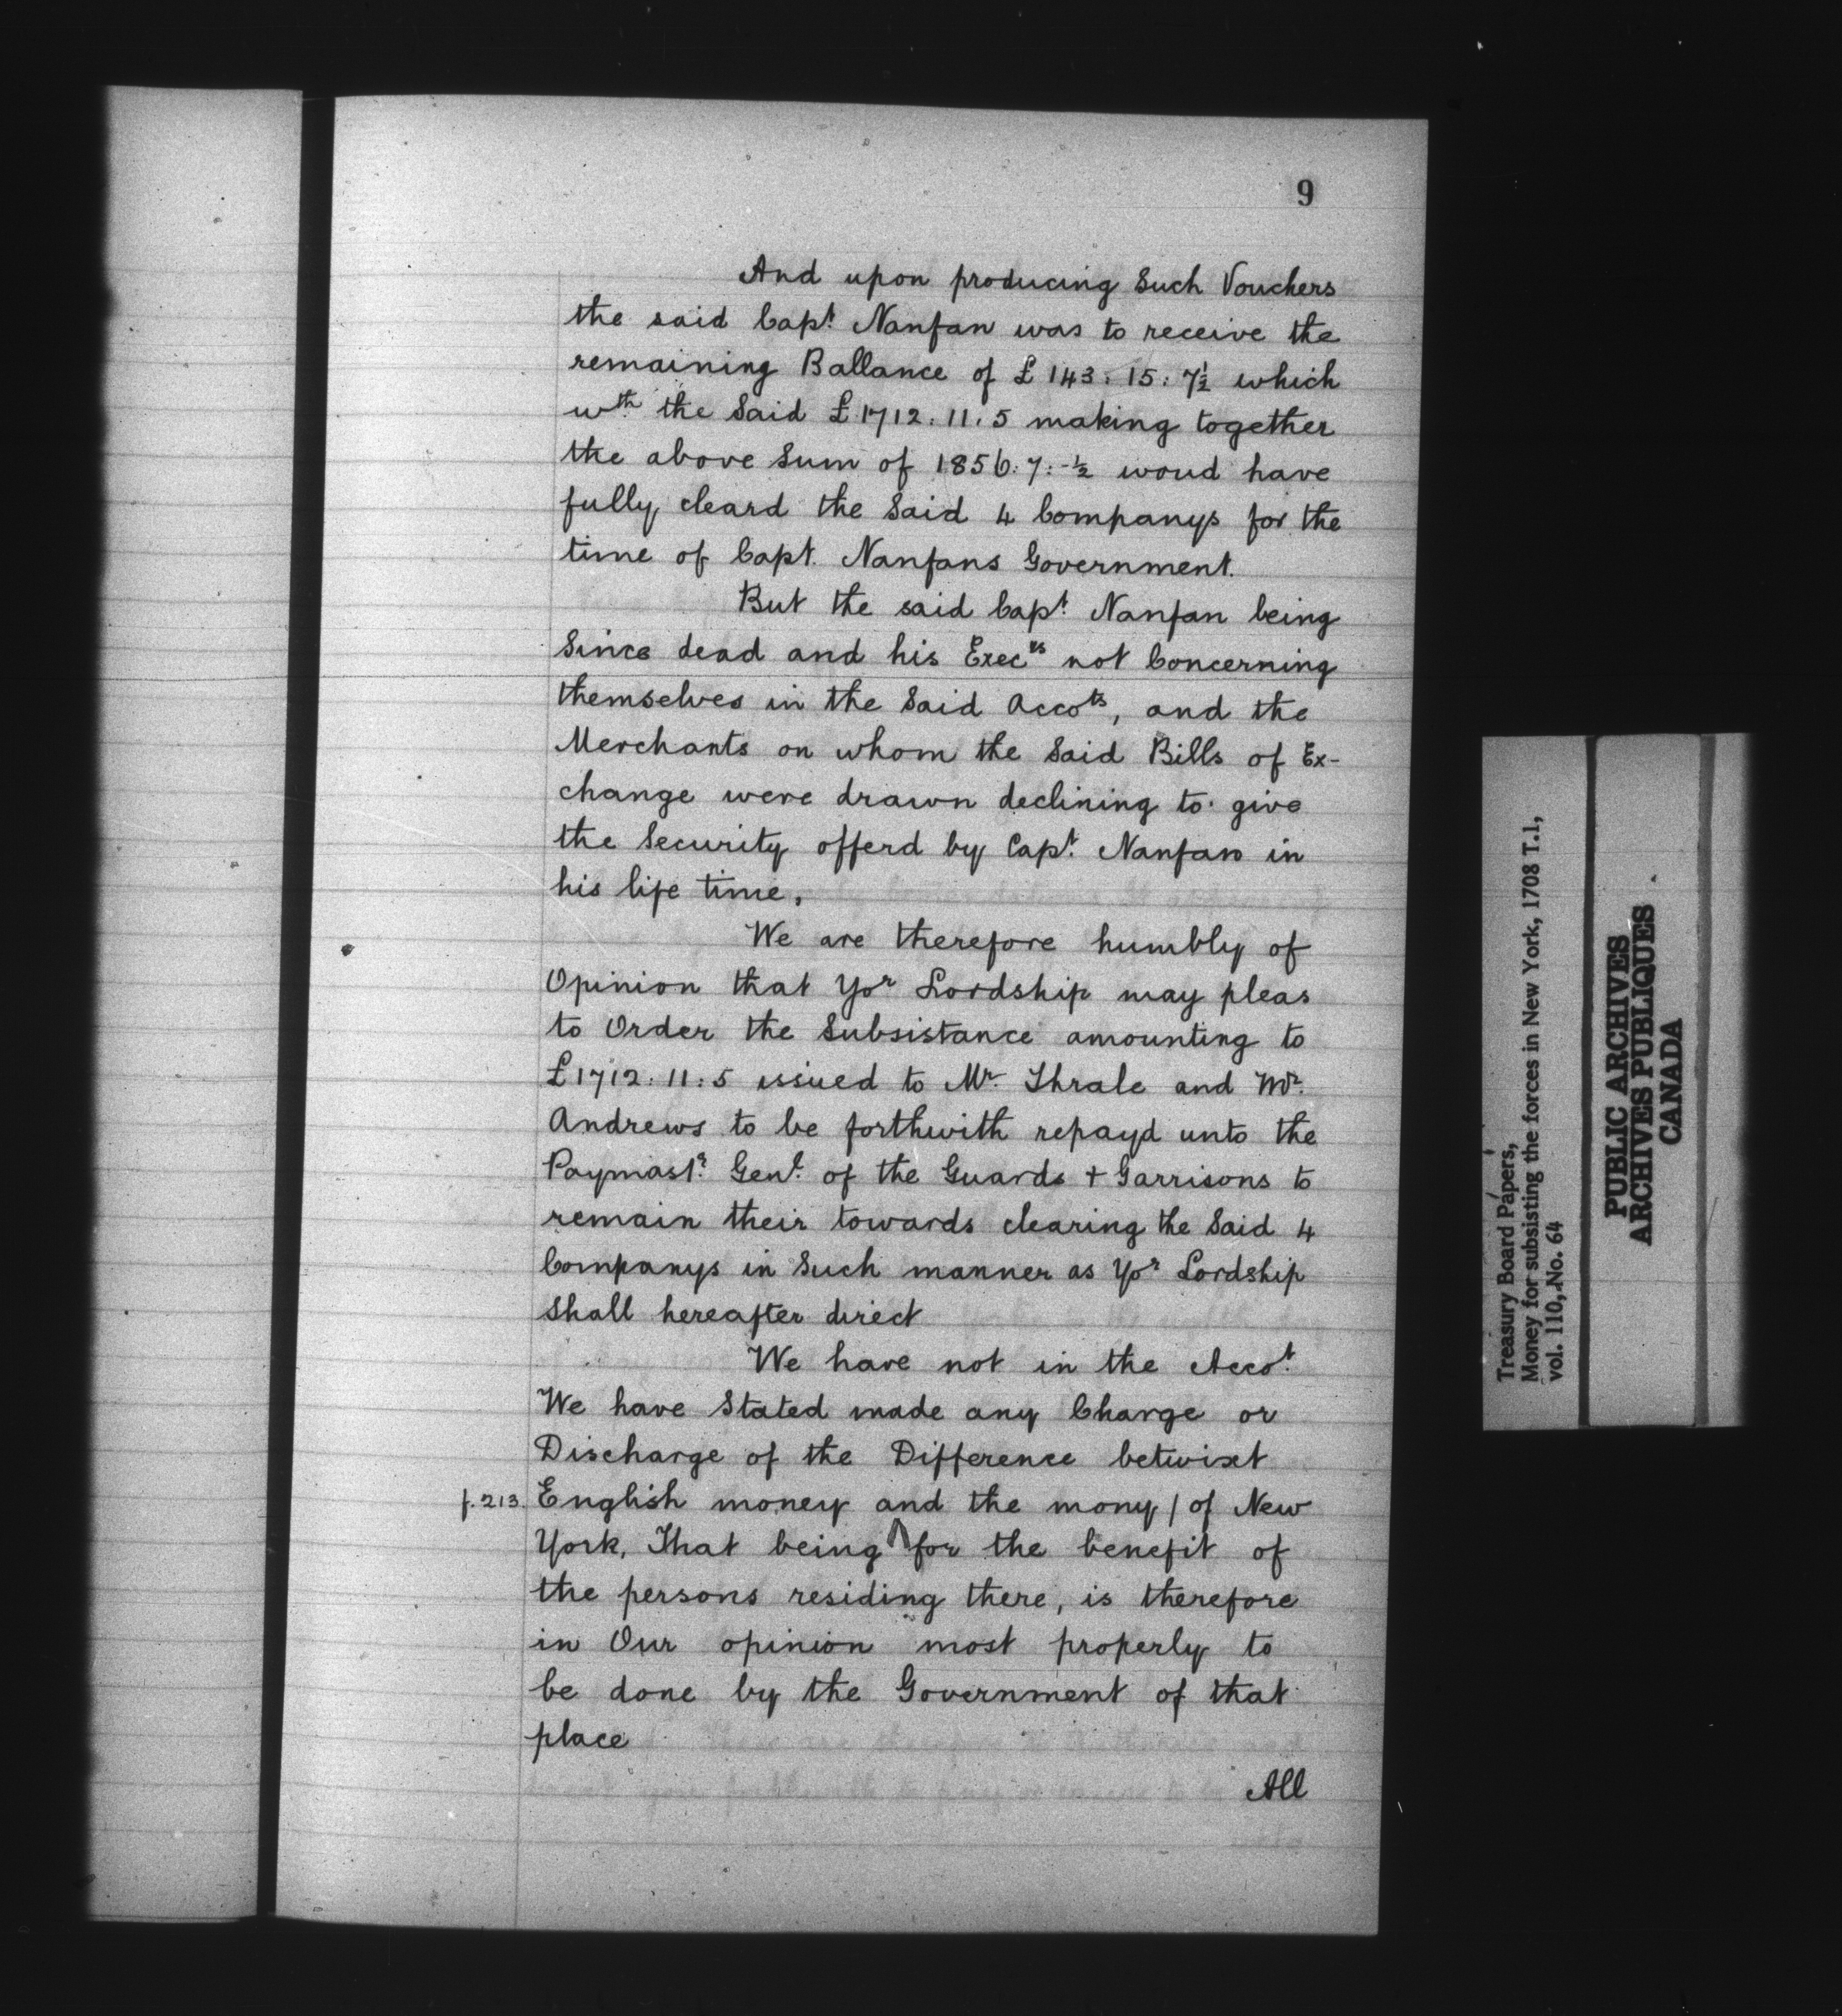 9
And upon producing Such Vouchers
the said Capt. Nanfan was to receive the
remaining Ballance of £ 143: 15: 7½ which
wth. the Said £1712. 11. 5 making together
the above Sum of 1856: 7: -½ woud have
fully cleard the Said 4 Companys for the
time of Capt. Nanfans Government.
But the said Capt. Nanfan being
Since dead and his Execrs not Concerning
themselves in the Said Accots, and the
Merchants on whom the Said Bills of Ex-
change were drawn declining to give
the Security offerd by Capt. Nanfan in
his life time.
We are therefore humbly of
Opinion that Yor Lordship may pleas
to Order the Subsistance amounting to
£1712: 11: 5 issued to Mr. Thrale and Mr.
Andrews to be forthwith repayd unto the
Paymastr. Genl. of the Guards + Garrisons to
remain their towards clearing the Said 4
Companys in Such manner as Yor Lordship
Shall hereafter direct
We have not in the Accot.
We have Stated made any Charge or
Discharge of the Difference betwixt
f. 213. English money and the mony / of New
York, That being for the benefit of
the persons residing there, is therefore
in Our opinion most properly to
be done by the Government of that
place
All
Treasury Board Papers,
Money for subsisting the forces in New York, 1708 T.1,
vol. 110, No. 64
PUBLIC ARCHIVES
ARCHIVES PUBLIQUES
CANADA